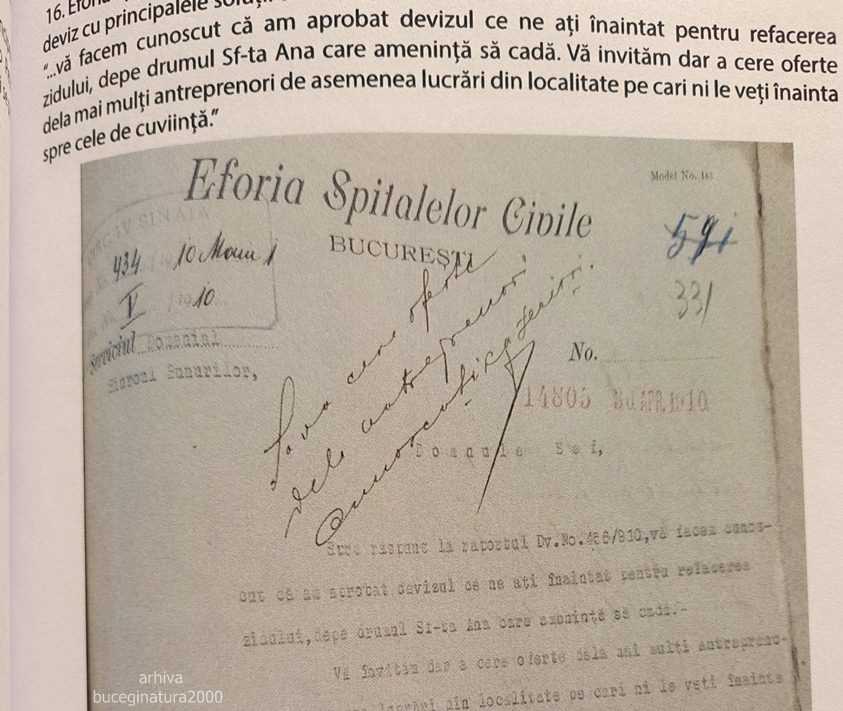 16. Efor
deviz cu principalele
"...vă facem cunoscut că am aprobat devizul ce ne ați înaintat pentru refacerea
zidului, depe drumul Sf-ta Ana care amenință să cadă. Vă invităm dar a cere oferte
dela mai mulți antreprenori de asemenea lucrări din localitate pe cari ni le veți înainta
spre cele de cuviință."
Eforia Spitalelor Civile
BUCUREȘTI
Model No.
SINAIA
934 10
V 10
Serviciul Domenial
591
331
No.
14805 30 APR 1910
S'a va cere oferte
dela antreprenori
Domnule Șef,
Spre raspuns la raportul Dv.No.456/910,vă facem cunos-
cut că am aprobat devizul ce ne ați înaintat pentru refacerea
zidului,depe drumul Sf-ta Ana care amenință să cadă.-
Vă invităm dar a cere oferte dela mai mulți antrepreno-
lucrări din localitate pe cari ni le veți înainta
arhiva
buceginatura2000